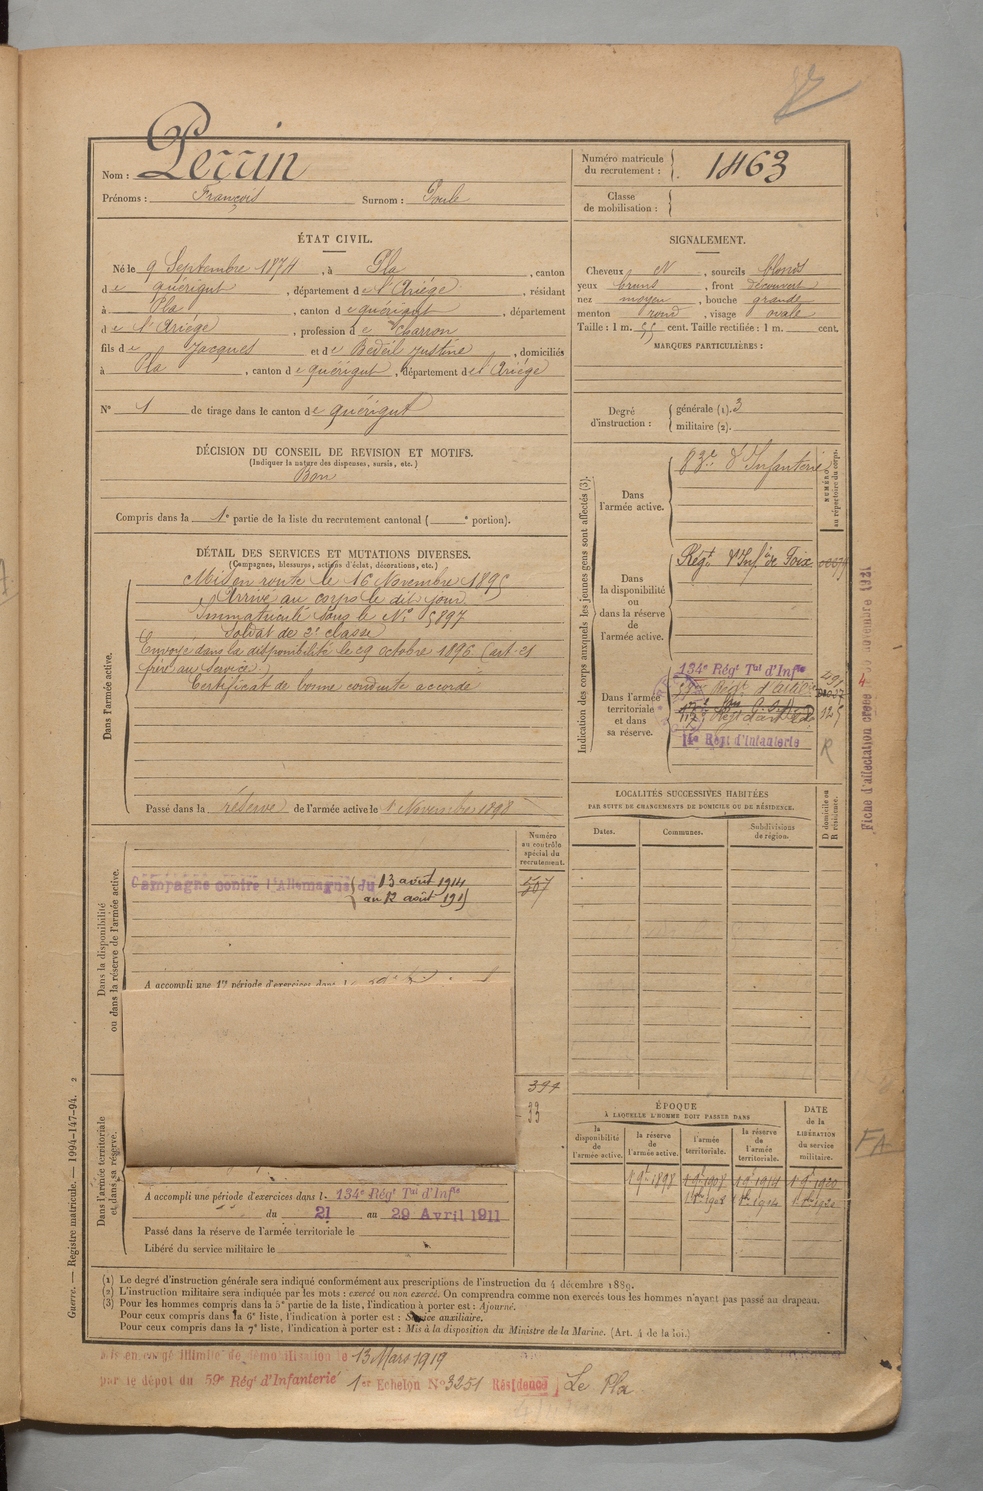 Nom : Perrin
Prénoms : François Surnom : Poule
Numéro matricule du recrutement : 1463
Classe de mobilisation :
ÉTAT CIVIL.
Né le 9 Septembre 1874, à Pla, canton
de quérigut, département de l'Ariége, résidant
à Pla, canton de quérigut, département
de l'Ariége, profession de charron
fils de Jacques et de Bedeil Justine, domiciliés
à Pla, canton de quérigut, département de l'Ariége
N° 1 de tirage dans le canton de quérigut
SIGNALEMENT.
Cheveux N, sourcils blonds
yeux bruns, front découvert
nez moyen, bouche grande
menton rond, visage ovale
Taille : 1 m. 55 cent. Taille rectifiée : 1 m. cent.
MARQUES PARTICULIÈRES :
Degré d'instruction : générale (1). 3
militaire (2).
DÉCISION DU CONSEIL DE REVISION ET MOTIFS.
(Indiquer la nature des dispenses, sursis, etc.)
Bon
Compris dans la 1e partie de la liste du recrutement cantonal ( e portion).
DÉTAIL DES SERVICES ET MUTATIONS DIVERSES.
(Campagnes, blessures, actions d'éclat, décorations, etc.)
Dans l'armée active.
Mis en route le 16 Novembre 1895
Arrivé au corps le dit jour.
Immatriculé sous le N° 5897
Soldat de 2e classe
Envoyé dans la disponibilité le 29 octobre 1896 (art. 21
au service)
Certificat de bonne conduite accordé
Passé dans la réserve de l'armée active le 1 Novembre 1898
Indication des corps auxquels les jeunes gens sont affectés (3).
NUMÉRO au répertoire du corps.
Dans l'armée active.
83e d'Infanterie
Dans la disponibilité ou dans la réserve de l'armée active.
Régt d'Inf. de Foix
Dans l'armée territoriale et dans sa réserve.
134e Régt Tal d'Infie
Régt d'
14e Régt d'Infanterie
R
Fiche d'affectation créée novembre 1921
LOCALITÉS SUCCESSIVES HABITÉES
PAR SUITE DE CHANGEMENTS DE DOMICILE OU DE RÉSIDENCE.
Dates. Communes. Subdivisions de région. D domicile ou R résidence.
Numéro au contrôle spécial du recrutement.
507
Dans la disponibilité ou dans la réserve de l'armée active.
Campagne contre l'Allemagne du 13 août 1914
au 12 août 191
A accompli une 1re période d'exercices dans l
394
33
Dans l'armée territoriale et dans sa réserve.
A accompli une période d'exercices dans l. 134e Régt Tal d'Infie
du 21 au 29 Avril 1911
Passé dans la réserve de l'armée territoriale le
Libéré du service militaire le
ÉPOQUE
À LAQUELLE L'HOMME DOIT PASSER DANS
la disponibilité de l'armée active. la réserve de l'armée active. l'armée territoriale. la réserve de l'armée territoriale.
DATE de la LIBÉRATION du service militaire.
1 9e 1898 1 9e 1908 1 9e 1914 1 9e 1920
FA
(1) Le degré d'instruction générale sera indiqué conformément aux prescriptions de l'instruction du 4 décembre 1889.
(2) L'instruction militaire sera indiquée par les mots : exercé ou non exercé. On comprendra comme non exercés tous les hommes n'ayant pas passé au drapeau.
(3) Pour les hommes compris dans la 5e partie de la liste, l'indication à porter est : Ajourné.
Pour ceux compris dans la 6e liste, l'indication à porter est : Service auxiliaire.
Pour ceux compris dans la 7e liste, l'indication à porter est : Mis à la disposition du Ministre de la Marine. (Art. 4 de la loi.)
Guerre. — Registre matricule. — 1994-147-94. 2
Mis en congé illimité de démobilisation le 13 Mars 1919
par le dépôt du 59e Régt d'Infanterie 1er Echelon N° 3251 Résidence Le Pla